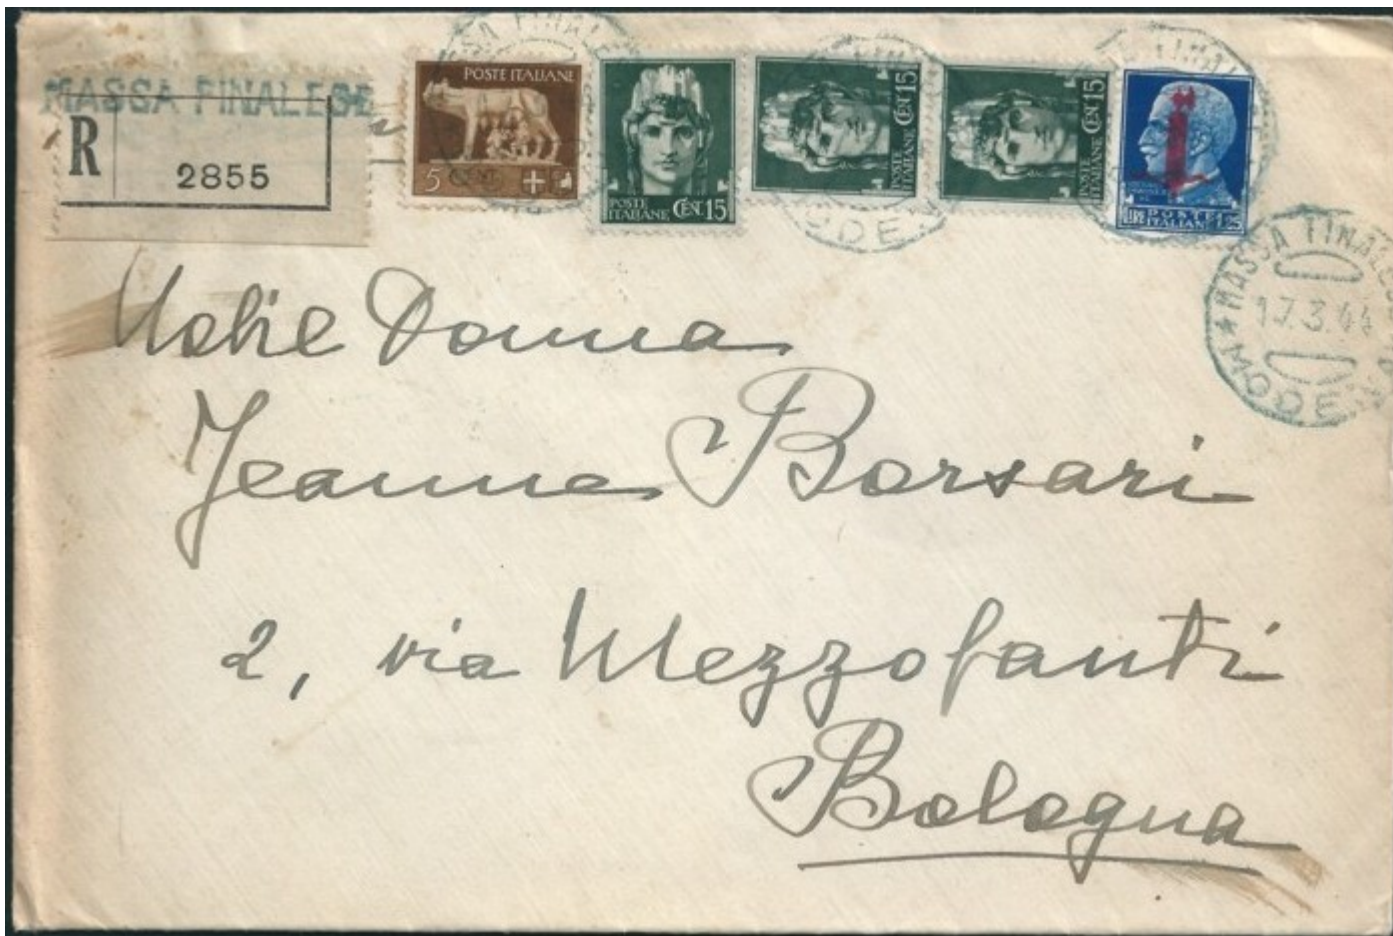 MASSA FINALESE
R
2855
POSTE ITALIANE
5 CENT
POSTE
ITALIANE CENT 15
POSTE
ITALIANE CENT 15
POSTE
ITALIANE CENT 15
LIRE POSTE 1,25
ITALIANE
MASSA FINALE
17.3.44
MODENA
Nobile Donna
Jeanne Borsari
2, via Mezzofanti
Bologna